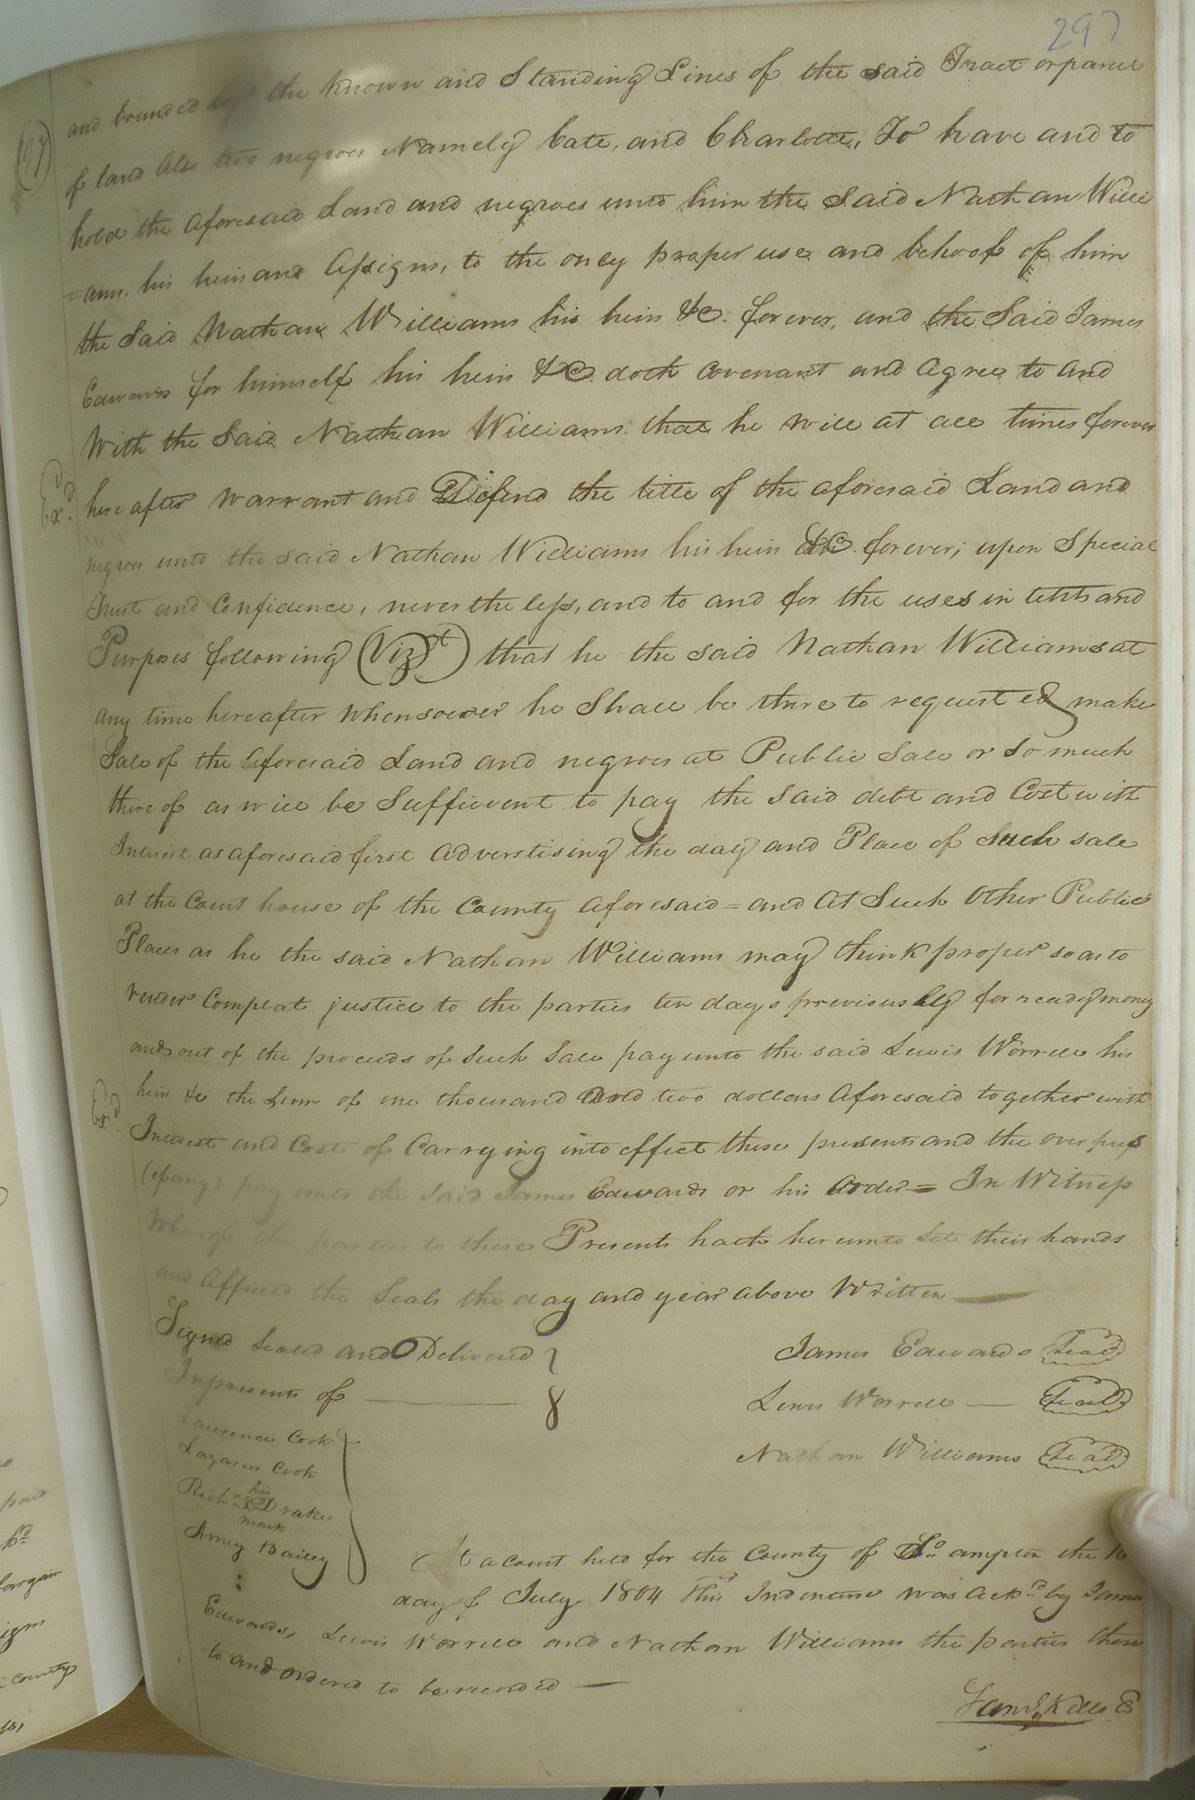 297
and bounded by the known and Standing Lines of the said Tract or parcel
of land Also two negroes Namely Cate, and Charlotte, To have and to
hold the aforesaid Land and negroes unto him the Said Nathan Willi
=ams. his heirs and Assigns, to the only proper use and behoof of him
the Said Nathan Williams his heirs &C. forever, and the Said James
Edwards for himself his heirs &C. doth Covenant and agree to and
With the Said Nathan Williams that he will at all times forever
Exd.
here after warrant and Defend the title of the aforesaid Land and
negroes unto the said Nathan Williams his heirs &C. forever; upon Special
Trust and Confidence, never the less, and to and for the uses in tents and
Purposes following (Vizt) that he the said Nathan Williams at
any time hereafter whensoever he Shall be there to request ed make
Sale of the aforesaid Land and negroes at Public Sale or So much
there of as will be Sufficient to pay the said debt and Cost with
Interest as aforesaid first Adverstising the day and Place of Such sale
at the Court house of the County aforesaid = and At Such Other Public
Places as he the said Nathan Williams may think proper so as to
render Compleat justice to the parties ten days previously for ready money
and out of the proceeds of Such Sale pay unto the said Lewis Worrell his
Exd.
heirs &c the Sum of one thousand and two dollars Aforesaid together with
Interest and Cost of Carrying into effect these presents and the over plus
(if any) pay unto the said James Edwards or his Order = In Witness
Whereof the parties to these Presents hath hereunto Set their hands
and Affixed the Seals the day and year above Written
Signed Sealed and Delivered
In presents of
James Edwards Seal
Lewis Worrell Seal
Nathan Williams Seal
Laurence Cook
Lazarus Cook
his
Rich Drake
mark
Amey Bailey
At a Court held for the County of So. ampton the 16
day of July 1804 This Indenture was Ackd. by James
Edwards, Lewis Worrell and Nathan Williams the parties there
to and ordered to be recorded
Saml. Kello C